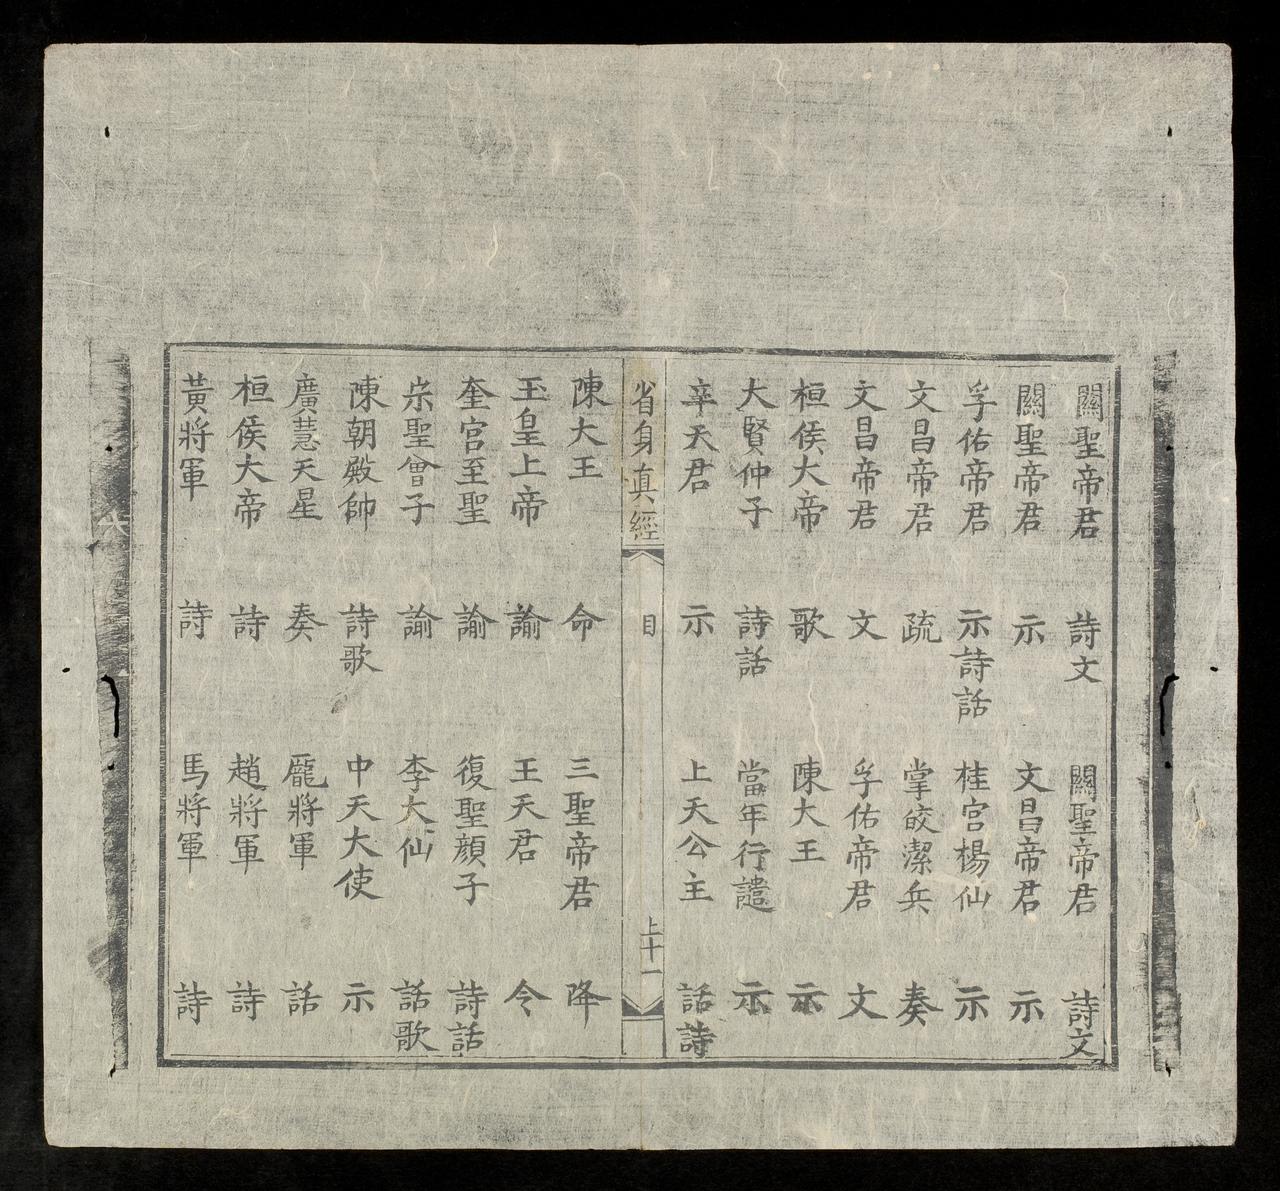 關聖帝君 詩文 關聖帝君 詩文
關聖帝君 示 文昌帝君 示
孚佑帝君 示詩話 桂宮楊仙 示
文昌帝君 疏 掌皎潔兵 奏
文昌帝君 文 孚佑帝君 文
桓侯大帝 歌 陳大王 示
大賢仲子 詩話 當年行譴 示
辛天君 示 上天公主 話詩
省身真經 目 上十一
陳大王 命 三聖帝君 降
玉皇上帝 諭 王天君 令
奎宮至聖 諭 復聖顔子 詩話
宗聖會子 諭 李大仙 話歌
陳朝殿帥 詩歌 中天大使 示
廣慧天星 奏 龐將軍 話
桓侯大帝 詩 趙將軍 詩
黃將軍 詩 馬將軍 詩